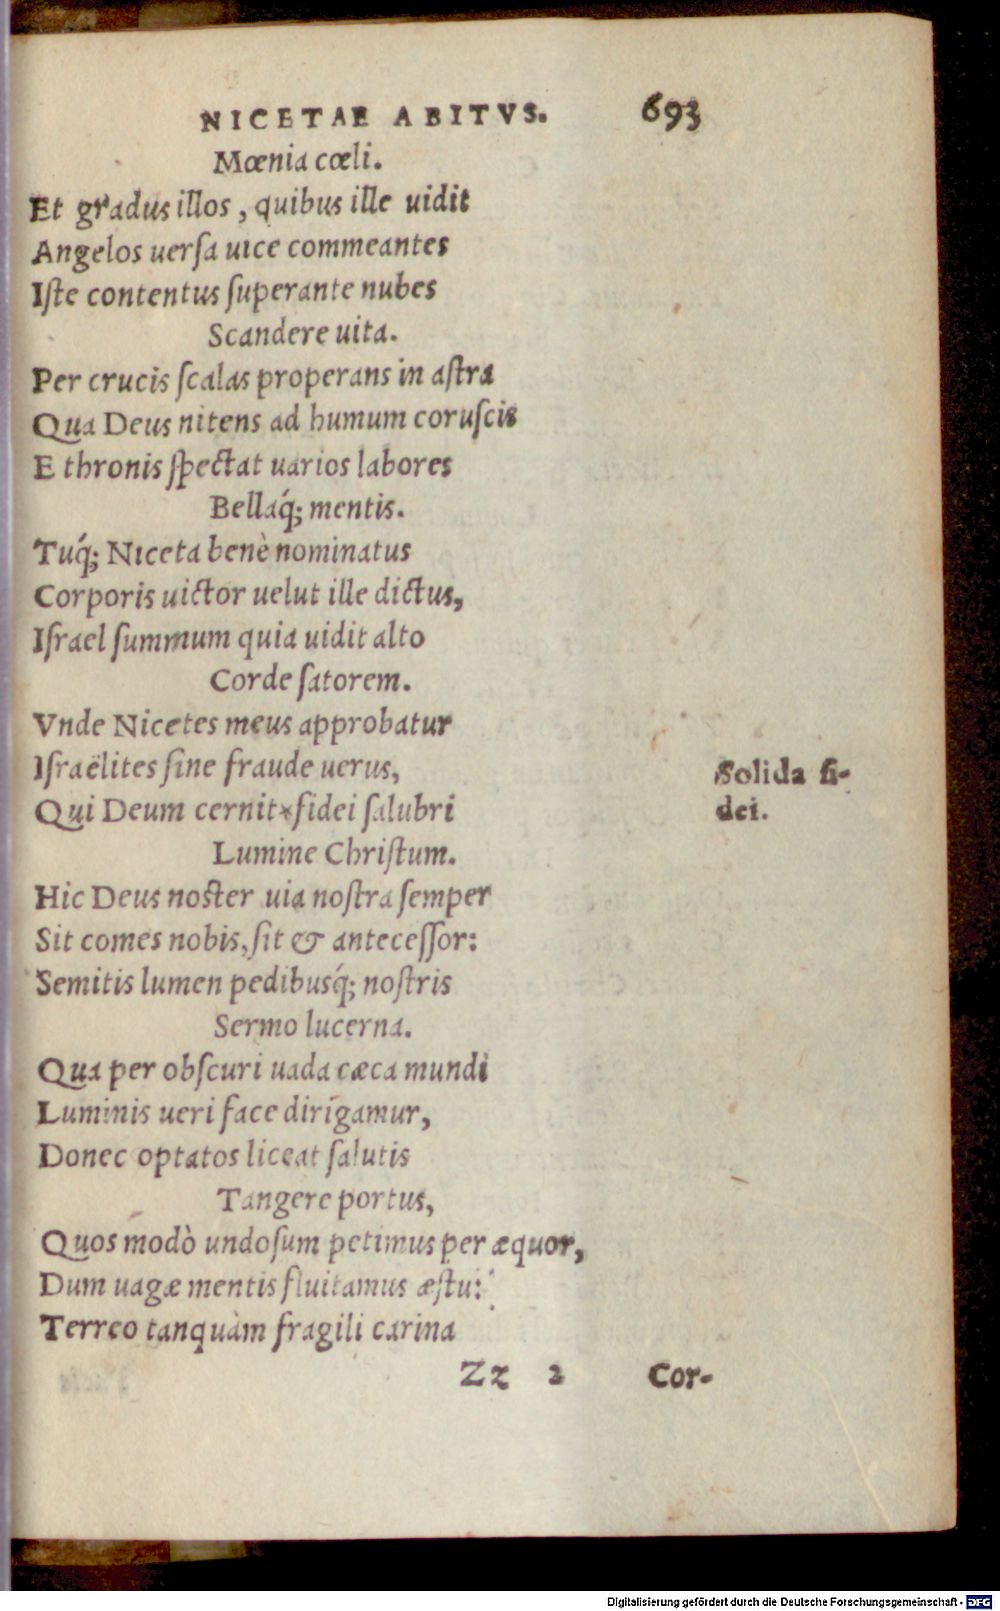 NICETAE ABITVS. 693
Mœnia cœli.
Et gradus illos, quibus ille uidit
Angelos uerſa uice commeantes
Iſte contentus ſuperante nubes
Scandere uita.
Per crucis ſcalas properans in aſtra
Qua Deus nitens ad humum coruſcis
E thronis ſpectat uarios labores
Bellaq́; mentis.
Tuq́; Niceta benè nominatus
Corporis uictor uelut ille dictus,
Iſrael ſummum quia uidit alto
Corde ſatorem.
Vnde Nicetes meus approbatur
Iſraëlites ſine fraude uerus,
Qui Deum cernit*fidei ſalubri
Solida fi-
dei.
Lumine Chriſtum.
Hic Deus noſter uia noſtra ſemper
Sit comes nobis, ſit & anteceſſor:
Semitis lumen pedibusq́; noſtris
Sermo lucerna.
Qua per obſcuri uada cæca mundi
Luminis ueri face dirigamur,
Donec optatos liceat ſalutis
Tangere portus,
Quos modò undoſum petimus per æquor,
Dum uagæ mentis fluitamus æſtu:
Terreo tanquàm fragili carina
Zz 2 Cor-
Digitalisierung gefördert durch die Deutsche Forschungsgemeinschaft - DFG